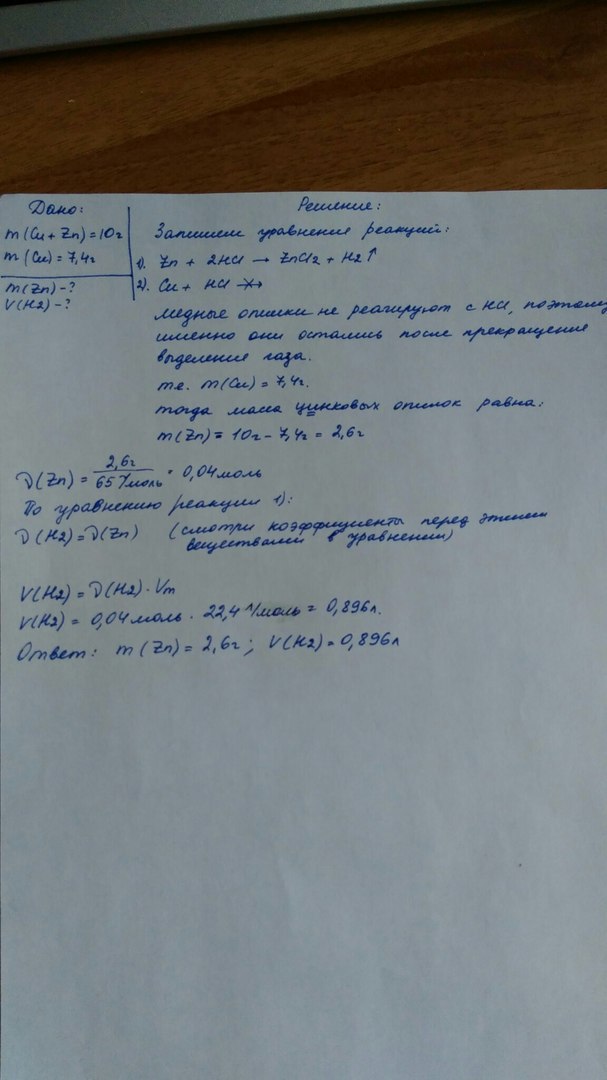 Дано:
Решение:
m(Cu+Zn)=10г
m(Cu)=7,4г
m(Zn)-?
V(H2)-?
Запишем уравнения реакций:
1). Zn + 2HCl → ZnCl2 + H2↑
2). Cu + HCl ↛
медные опилки не реагируют с HCl, поэтому
именно они остались после прекращение
выделение газа.
т.е. m(Cu) = 7,4г.
тогда масса цинковых опилок равна:
m(Zn) = 10г - 7,4г = 2,6г
ν(Zn) = 2,6г / 65 г/моль = 0,04 моль
По уравнению реакции 1):
ν(H2)=ν(Zn) (смотри коэффициенты перед этими
веществами в уравнении)
V(H2) = ν(H2) · Vm
V(H2) = 0,04 моль · 22,4 л/моль = 0,896л.
Ответ: m(Zn) = 2,6г; V(H2) = 0,896л